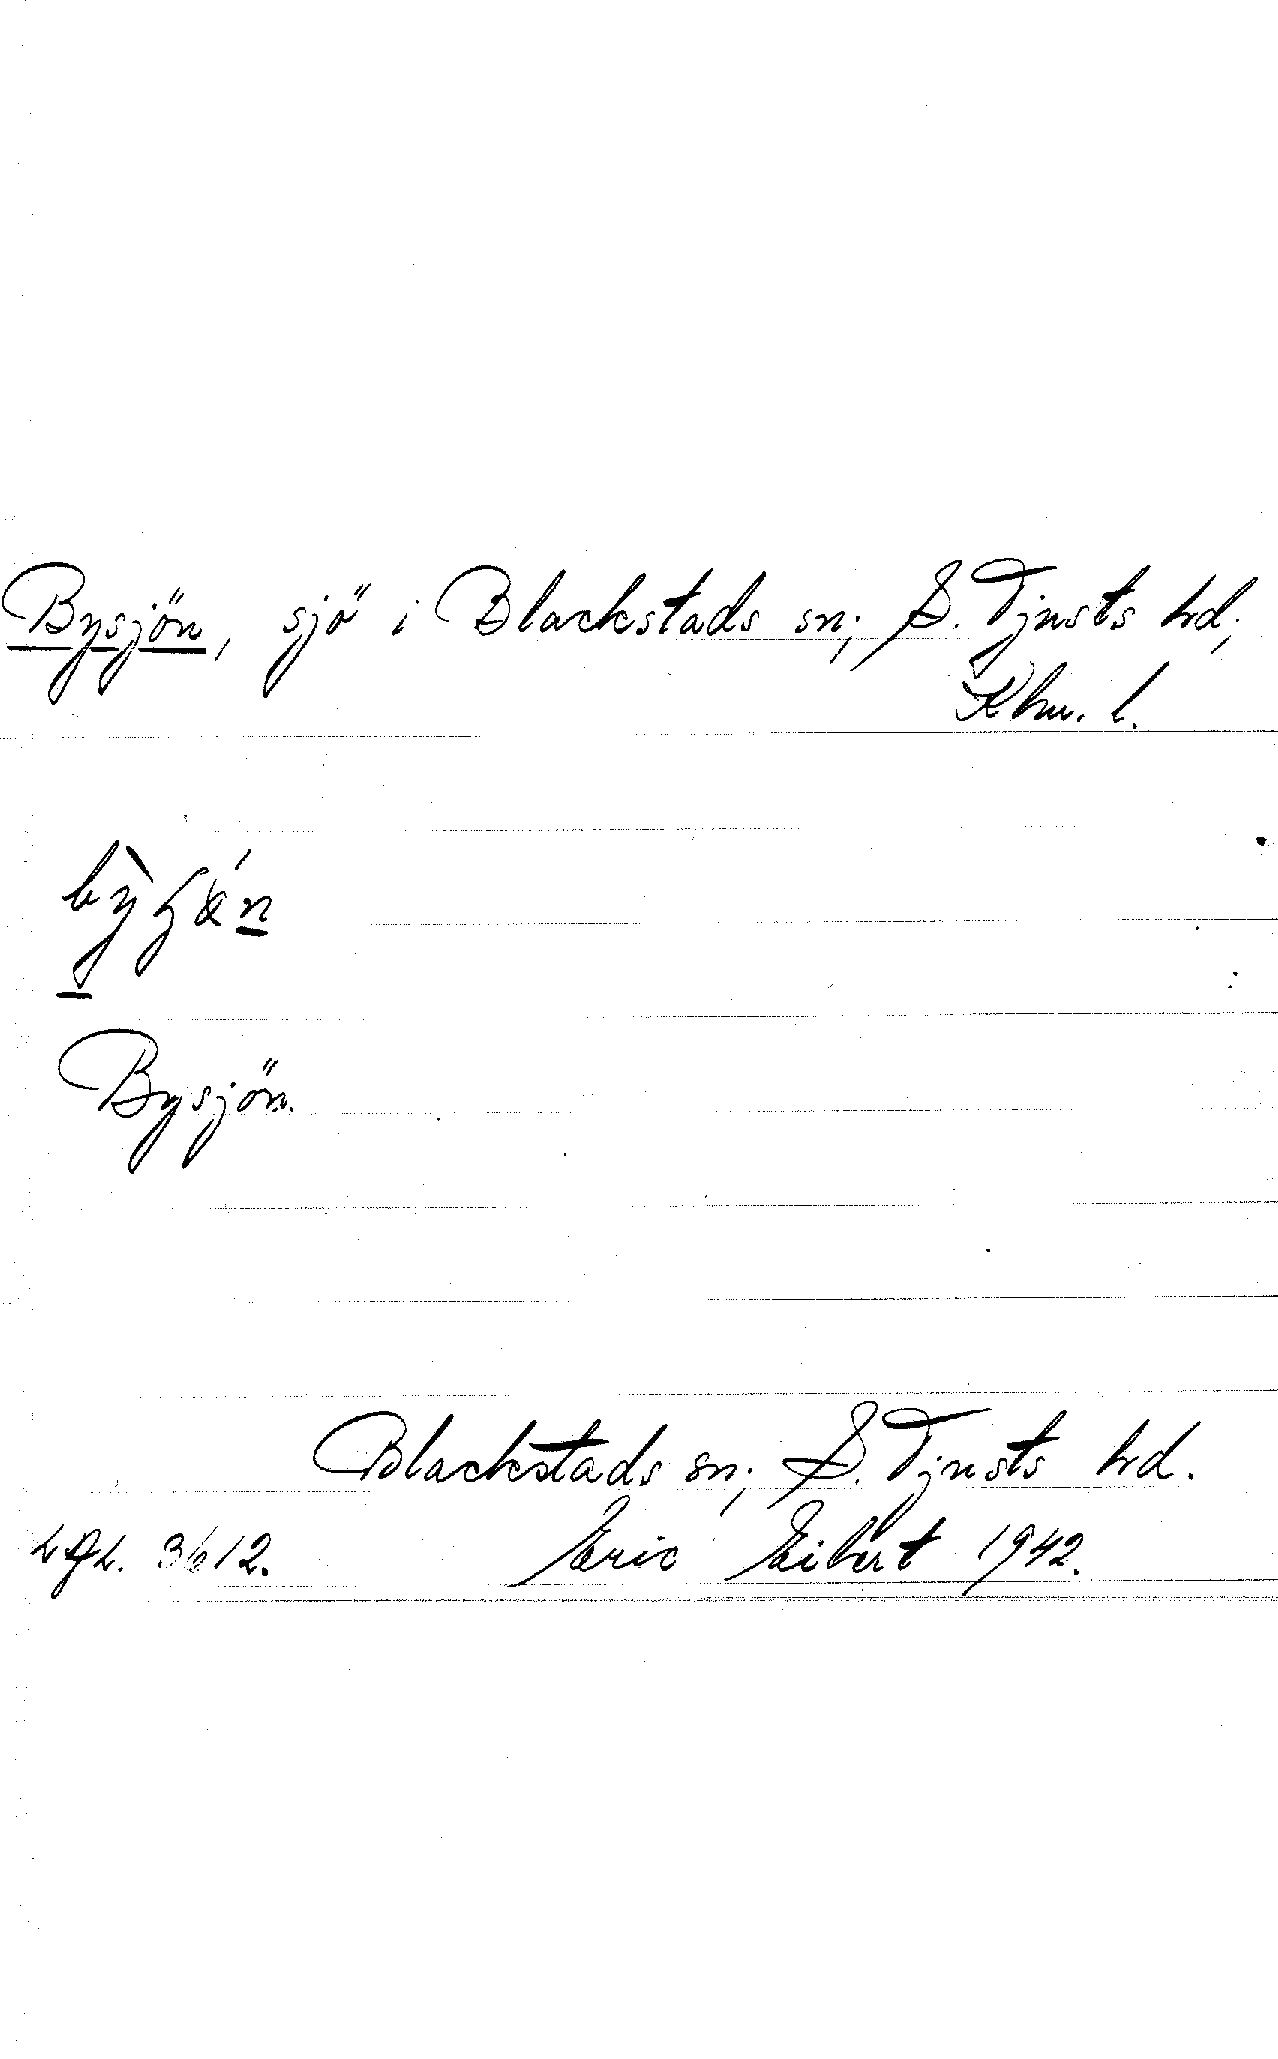 Bysjön, sjö i Blackstads sn; S. Tjusts hd;
Klm. l.
Bysjön.
Blackstads sn; S. Tjusts hd.
Eric Eibert 1942.